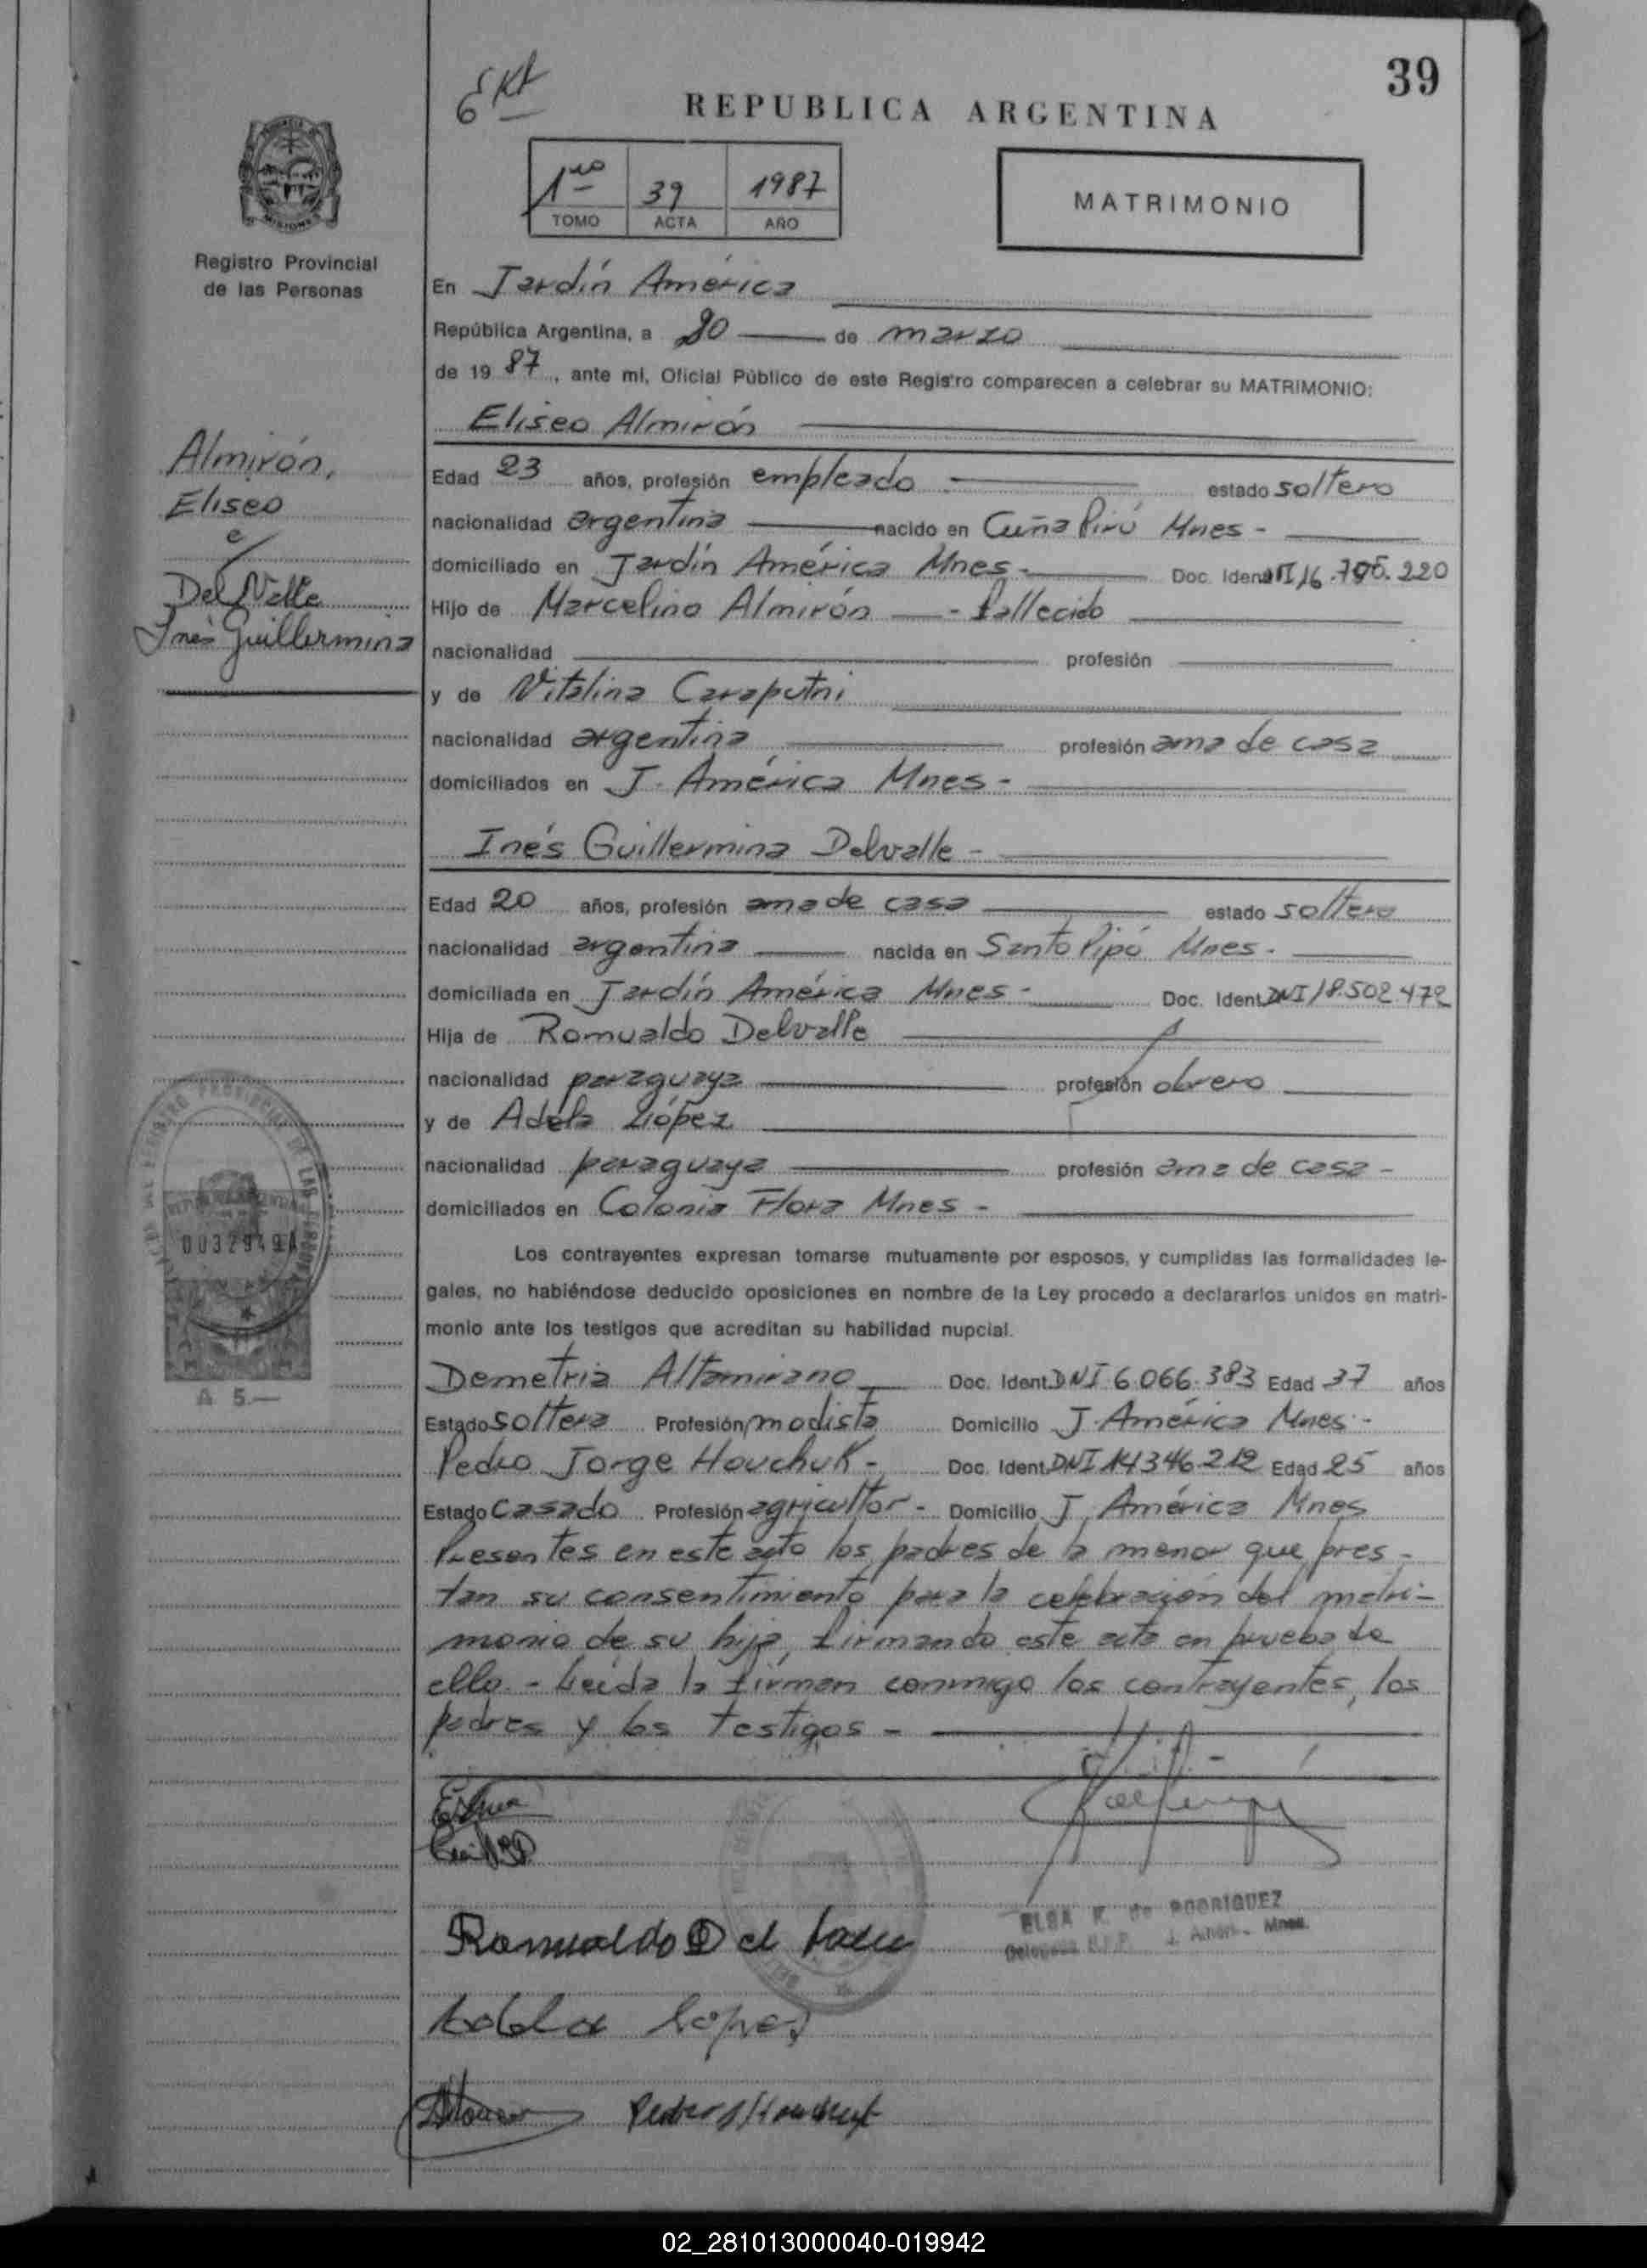 39
REPUBLICA ARGENTINA
1ro 39 1987
TOMO ACTA AÑO
MATRIMONIO
Registro Provincial
de las Personas
En Jardín América
República Argentina, a 20 de marzo
de 19 87, ante mí, Oficial Público de este Registro comparecen a celebrar su MATRIMONIO:
Eliseo Almirón
Almirón,
Eliseo
e/
Del Valle
Inés Guillermina
Edad 23 años, profesión empleado estado soltero
nacionalidad argentina nacido en Cuña Pirú Mnes -
domiciliado en Jardín América Mnes - Doc. Ident. 16.795.220
Hijo de Marcelino Almirón - fallecido
nacionalidad profesión
y de Vitalina
nacionalidad argentina profesión ama de casa
domiciliados en J. América Mnes -
Inés Guillermina Delvalle -
Edad 20 años, profesión ama de casa estado soltera
nacionalidad argentina nacida en Santo Pipó Mnes -
domiciliada en Jardín América Mnes - Doc. Ident. DNI 18.502.472
Hija de Romualdo Delvalle
nacionalidad paraguaya profesión obrero
y de Adela López
nacionalidad paraguaya profesión ama de casa -
domiciliados en Colonia Flora Mnes -
Los contrayentes expresan tomarse mutuamente por esposos, y cumplidas las formalidades le-
gales, no habiéndose deducido oposiciones en nombre de la Ley procedo a declararlos unidos en matri-
monio ante los testigos que acreditan su habilidad nupcial.
0032949A
A 5.—
Demetria Altamirano Doc. Ident. DNI 6.066.383 Edad 37 años
Estado soltera Profesión modista Domicilio J. América Mnes -
Pedro Jorge Houchuk - Doc. Ident. DNI 14346212 Edad 25 años
Estado casado Profesión agricultor - Domicilio J. América Mnes
Presentes en este acto los padres de la menor que pres-
tan su consentimiento para la celebración del matri-
monio de su hija, firmando este acta en prueba de
ello - Leída la firman conmigo los contrayentes, los
padres y los testigos -
ELSA de RODRIGUEZ
Romualdo Del
López
02_281013000040-019942